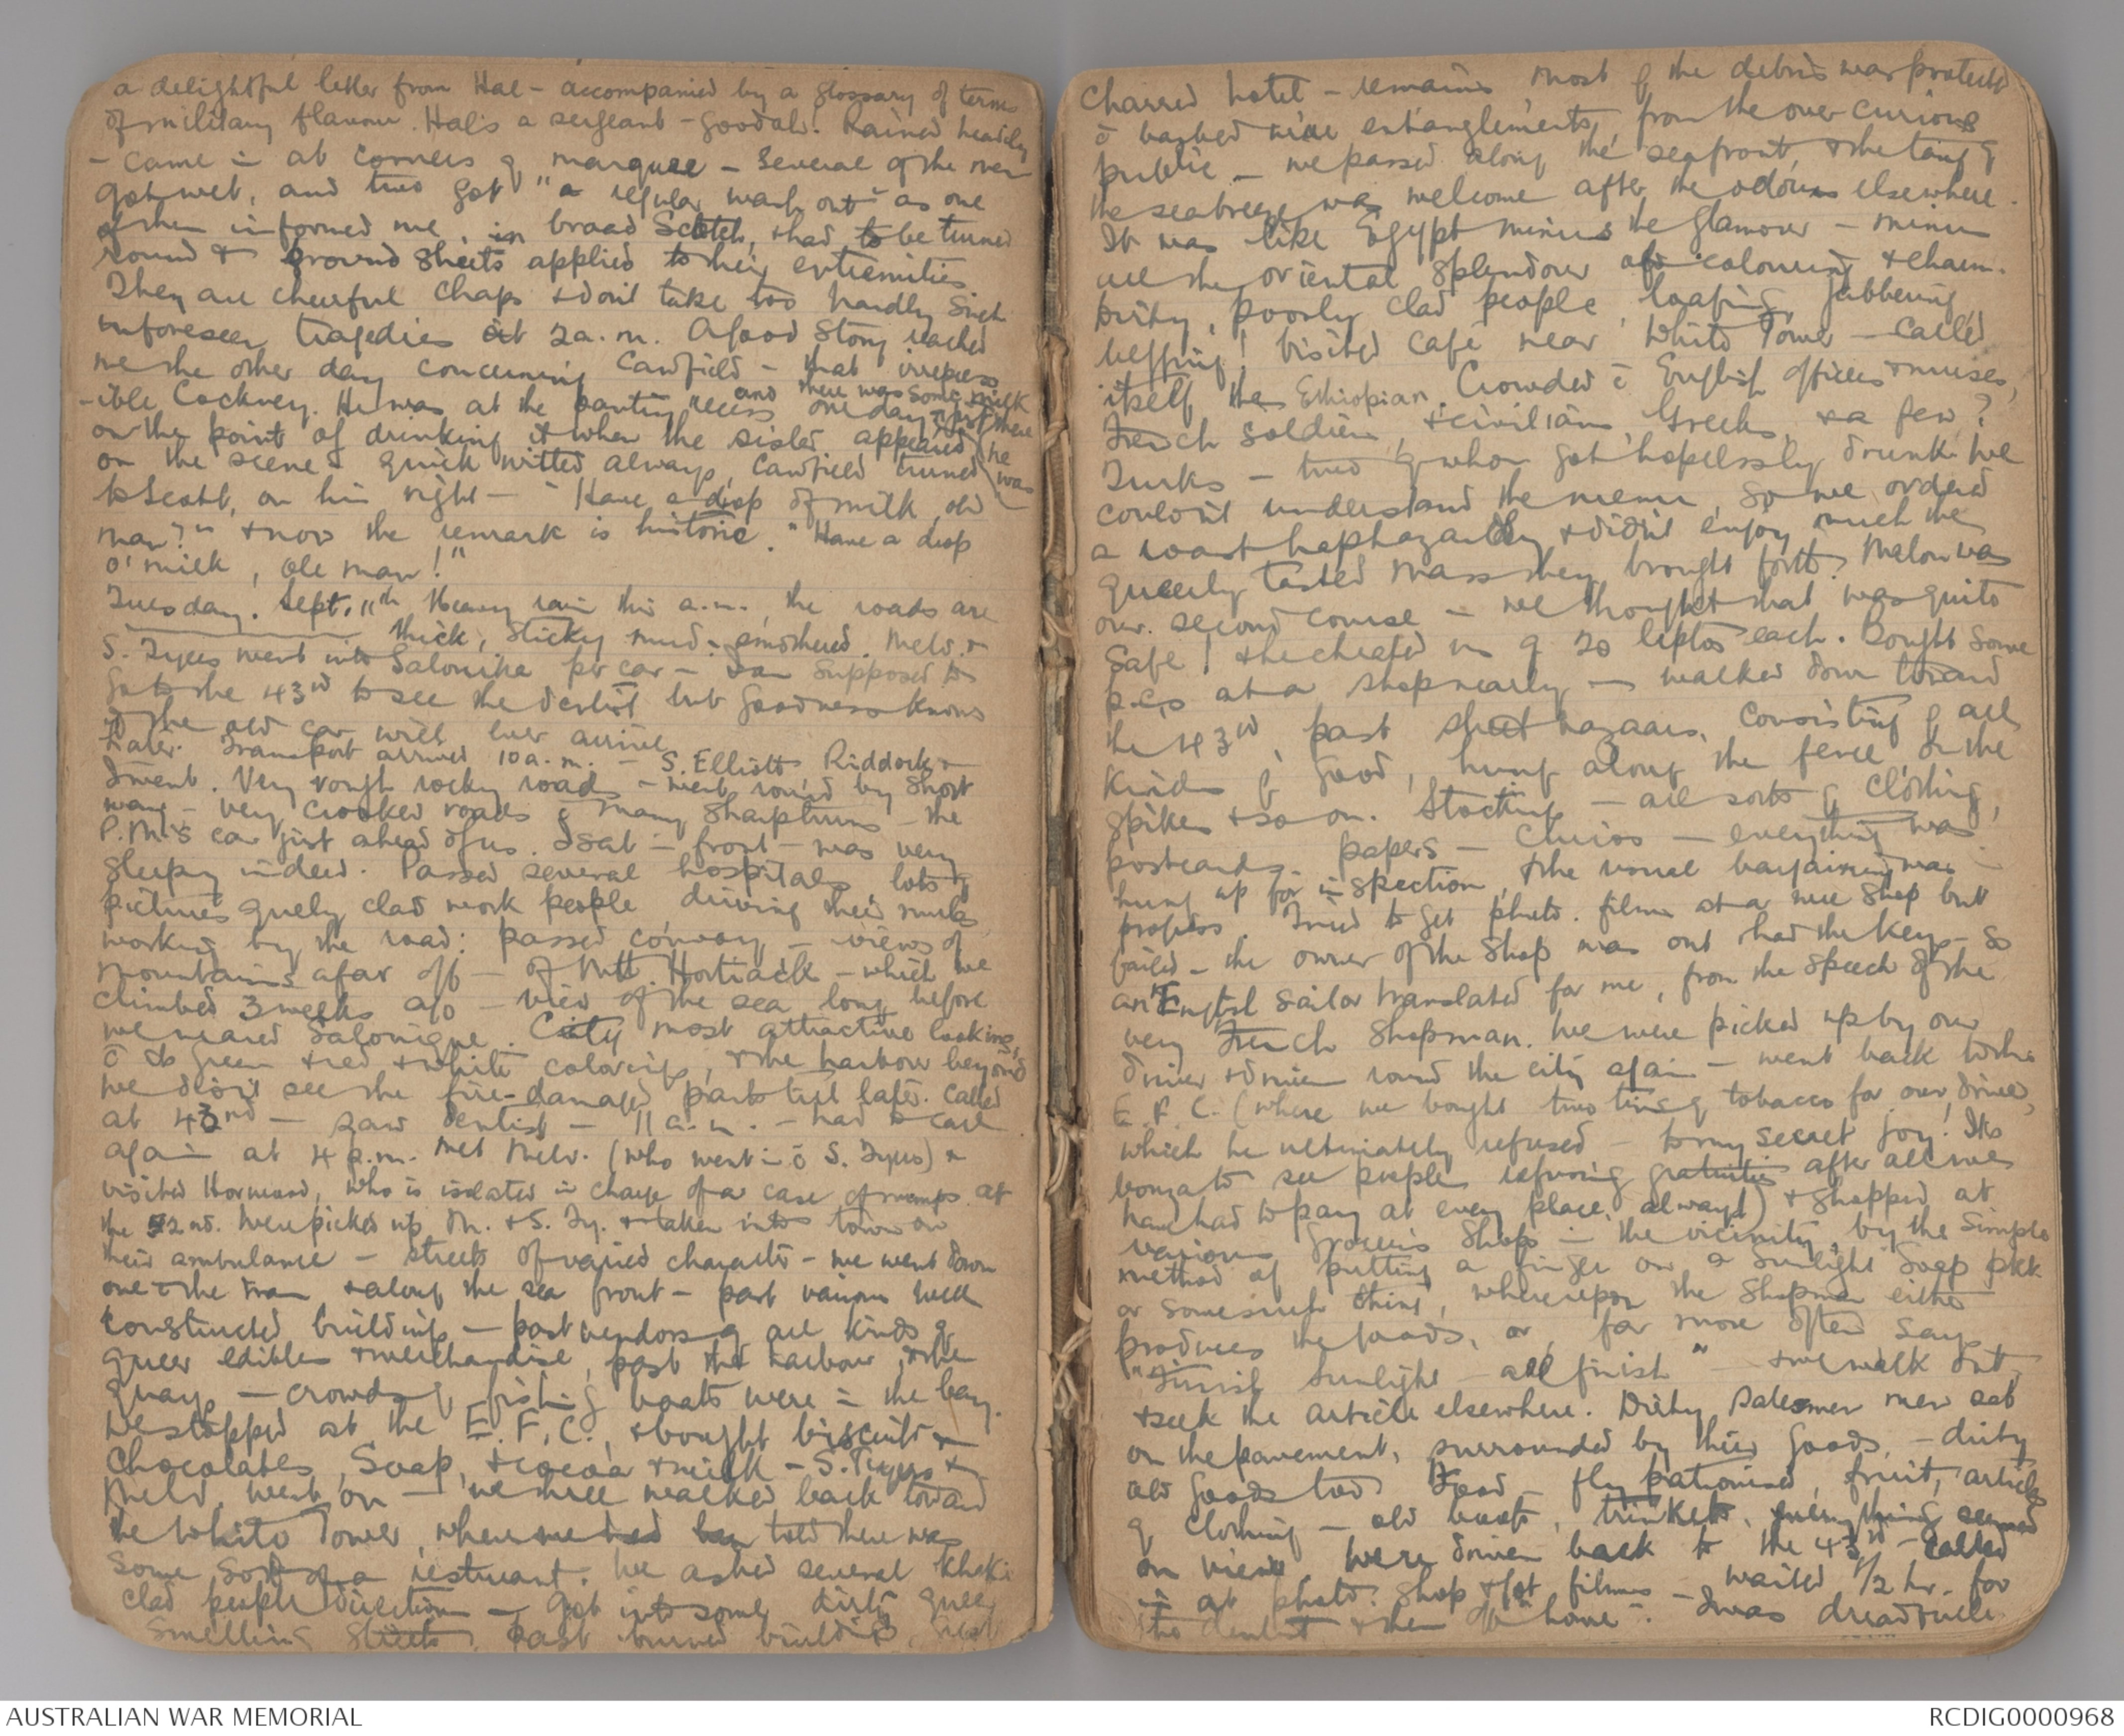 a delightful letter from Hal - accompanied by a glossary of terms
of military flavour. Hal's a sergeant - good oh! Rained heavily
- came in at corners of marquee - several of the men
got wet, and two got "a regular wash out" as one
of them informed me, in broad Scotch, & had to be turned
round & ground sheets applied to their extremities
They are cheerful chaps & don't take too hardly such
unforeseen tragedies at 2 a.m. A good story reached
me the other day concerning Cawfield - that irrepress
-ible Cockney. He was at the pantry recess one day and there was some milk there
on the point of drinking it when the sister appeared (he was
on the scene. Quick witted always, Cawfield turned
to Scott, on his right - "Have a drop of milk old
man?" & now the remark is historic. "Have a drop
o' milk, ole man!"
Tuesday. Sept. 11th Heavy rain this a.m. the roads are
thick, sticky mud - smothered. Melv. &
S. Tyers went into Salonika per car - I am supposed to
go to the 43rd to see the dentist but goodness knows
if the old car will ever arrive
Later. Transport arrived 10 a.m. - S. Elliott, Riddock &
I went. Very rough rocky road - went round by short
way - very crooked roads & many sharp turns - the
P.M's car just ahead of us. I sat in front - was very
sleepy indeed. Passed several hospitals, lots of
picturesquely clad work people driving their mules
working by the road: passed convoy - views of
mountains afar off - of Mtt. Hortiack - which we
climbed 3 weeks ago - view of the sea long before
we neared Salonique. City most attractive looking,
c̄ its green & red & white colouring, & the harbour beyond
We didn't see the fire-damaged parts till later. Called
at 43rd - saw dentist - 11 a.m. - had to call
again at 4 p.m. Met Melv. (who went in c̄ S. Tyers) &
visited Horwood, who is isolated in charge of a case of mumps at
the 52nd. We picked up M. & S. Ty. & taken into town on
their ambulance - streets of varied character - we went down
one c̄ the tram & along the sea front - past various well
constructed buildings - past vendors of all kinds of
queer edibles & merchandise, past the harbour, & the
quays - crowds of fishing boats were in the bay.
We stopped at the E.F.C., & bought biscuits &
chocolates, soap, & cocoa & milk - S. Tyers &
Melv. went on - we three walked back toward
the White Tower, where we had been told there was
some sort of a restuarant. We asked several khaki
clad people direction - got into some dirty queer
smelling streets, past burned buildings, great
charred hotel - remains most of the debris was protected
c̄ barbed wire entanglements, from the over-curious
public - we passed along the seafront, & the tang of
the seabreeze was welcome after the odours elsewhere.
It was like Egypt minus the glamour - minus
all the oriental splendour of colouring & charm.
Dirty, poorly clad people, loafing, jabbering,
begging! Visited café near White Tower - called
itself the Ethiopian. Crowded c̄ English officers & nurses,
French soldiers, & civilians, Greeks, & a few?
Turks - two of whom got hopelessly drunk. We
couldn't understand the menu, so we ordered
a roast haphazardly & didn't enjoy much the
queerly tasted mass they brought forth. Melon was
our second course - we thought that was quite
safe! & he cheated us of 20 leptas each. Bought some
p.c.s at a shop nearby - walked down toward
the 43rd, past street bazaars, consisting of all
kinds of food, hung along the fence, to the
spikes & so on. Stockings - all sorts of clothing,
postcards - papers - curios - everything was
hung up for inspection, & the usual bargaining was in
progress. Tried to get photo. films at a nice shop but
failed - the owner of the shop was out & had the keys - so
an English sailor translated for me, from the speech of the
very French shopman. We were picked up by our
driver & driven round the city again - went back to the
E.F.C. (where we bought two tins of tobacco for our driver,
which he ultimately refused - to my secret joy! It's
bonza to see people refusing gratuities after all we
have had to pay at every place, always) & shopped at
various Grocer's shops in the vicinity, by the simple
method of putting a finger on a Sunlight soap pkt
or some such thing, whereupon the shopman either
produces the goods, or, far more often says,
"Finish Sunlight - all finish" - & we walk out
& seek the article elsewhere. Dirty salesmen men sat
on the pavement, surrounded by their goods, - dirty
old goods too. Food - fly patronised, fruit, articles
of clothing - old boots, trinkets, everything seemed
on view. Were driven back to the 43rd - called
in at photo. shop & got films - waited 1/2 hr. for
the dentist & then off "home". I was dreadfully

AUSTRALIAN WAR MEMORIAL
RCDIG0000968